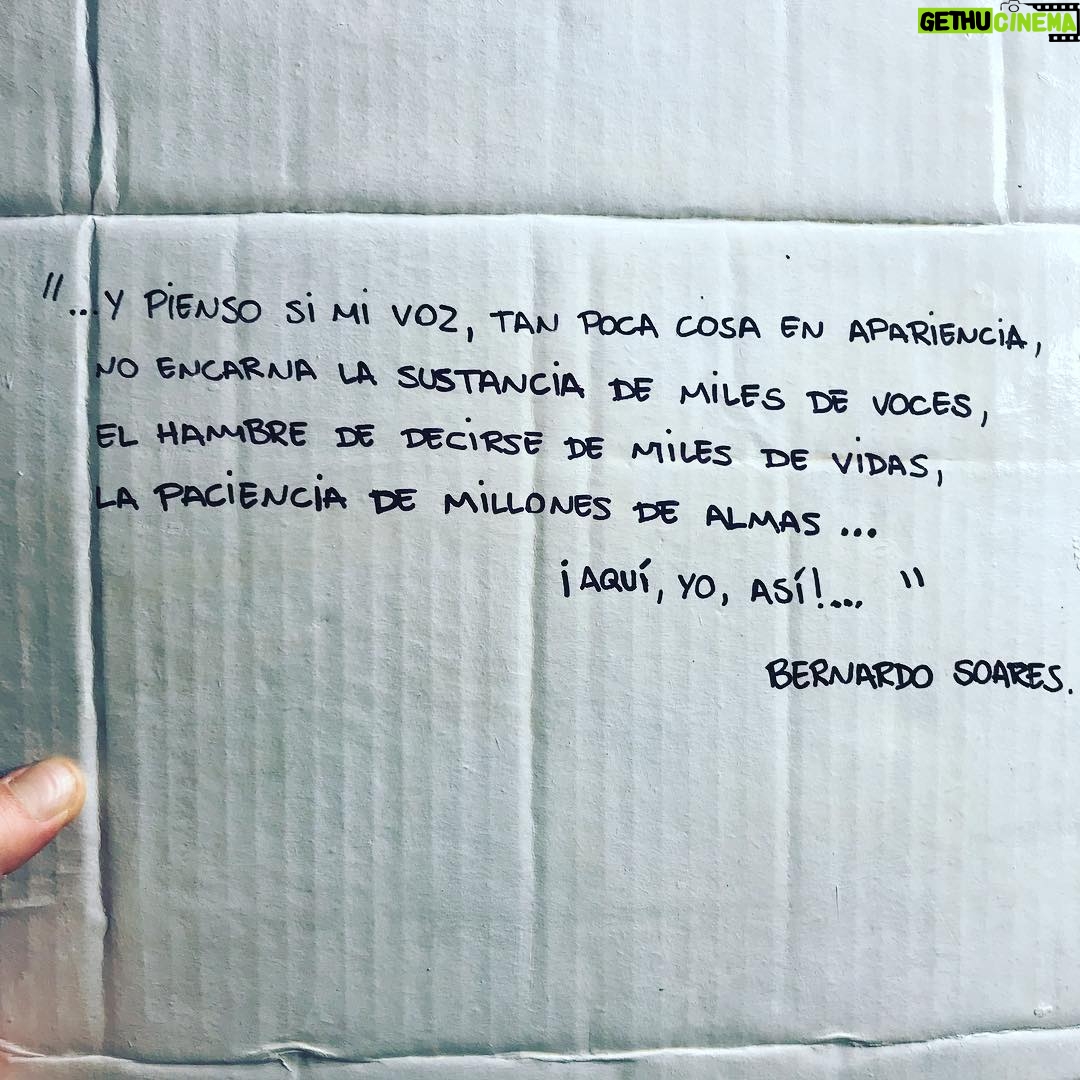 GETHUCINEMA
"...Y PIENSO SI MI VOZ, TAN POCA COSA EN APARIENCIA,
NO ENCARNA LA SUSTANCIA DE MILES DE VOCES,
EL HAMBRE DE DECIRSE DE MILES DE VIDAS,
LA PACIENCIA DE MILLONES DE ALMAS ...
¡AQUÍ, YO, ASÍ!... "
BERNARDO SOARES.